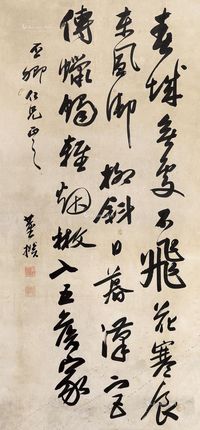 春城無處不飛花寒食
東風御柳斜日暮漢宮
傳蠟燭輕烟散入五侯家
亞卿仁兄正之
董